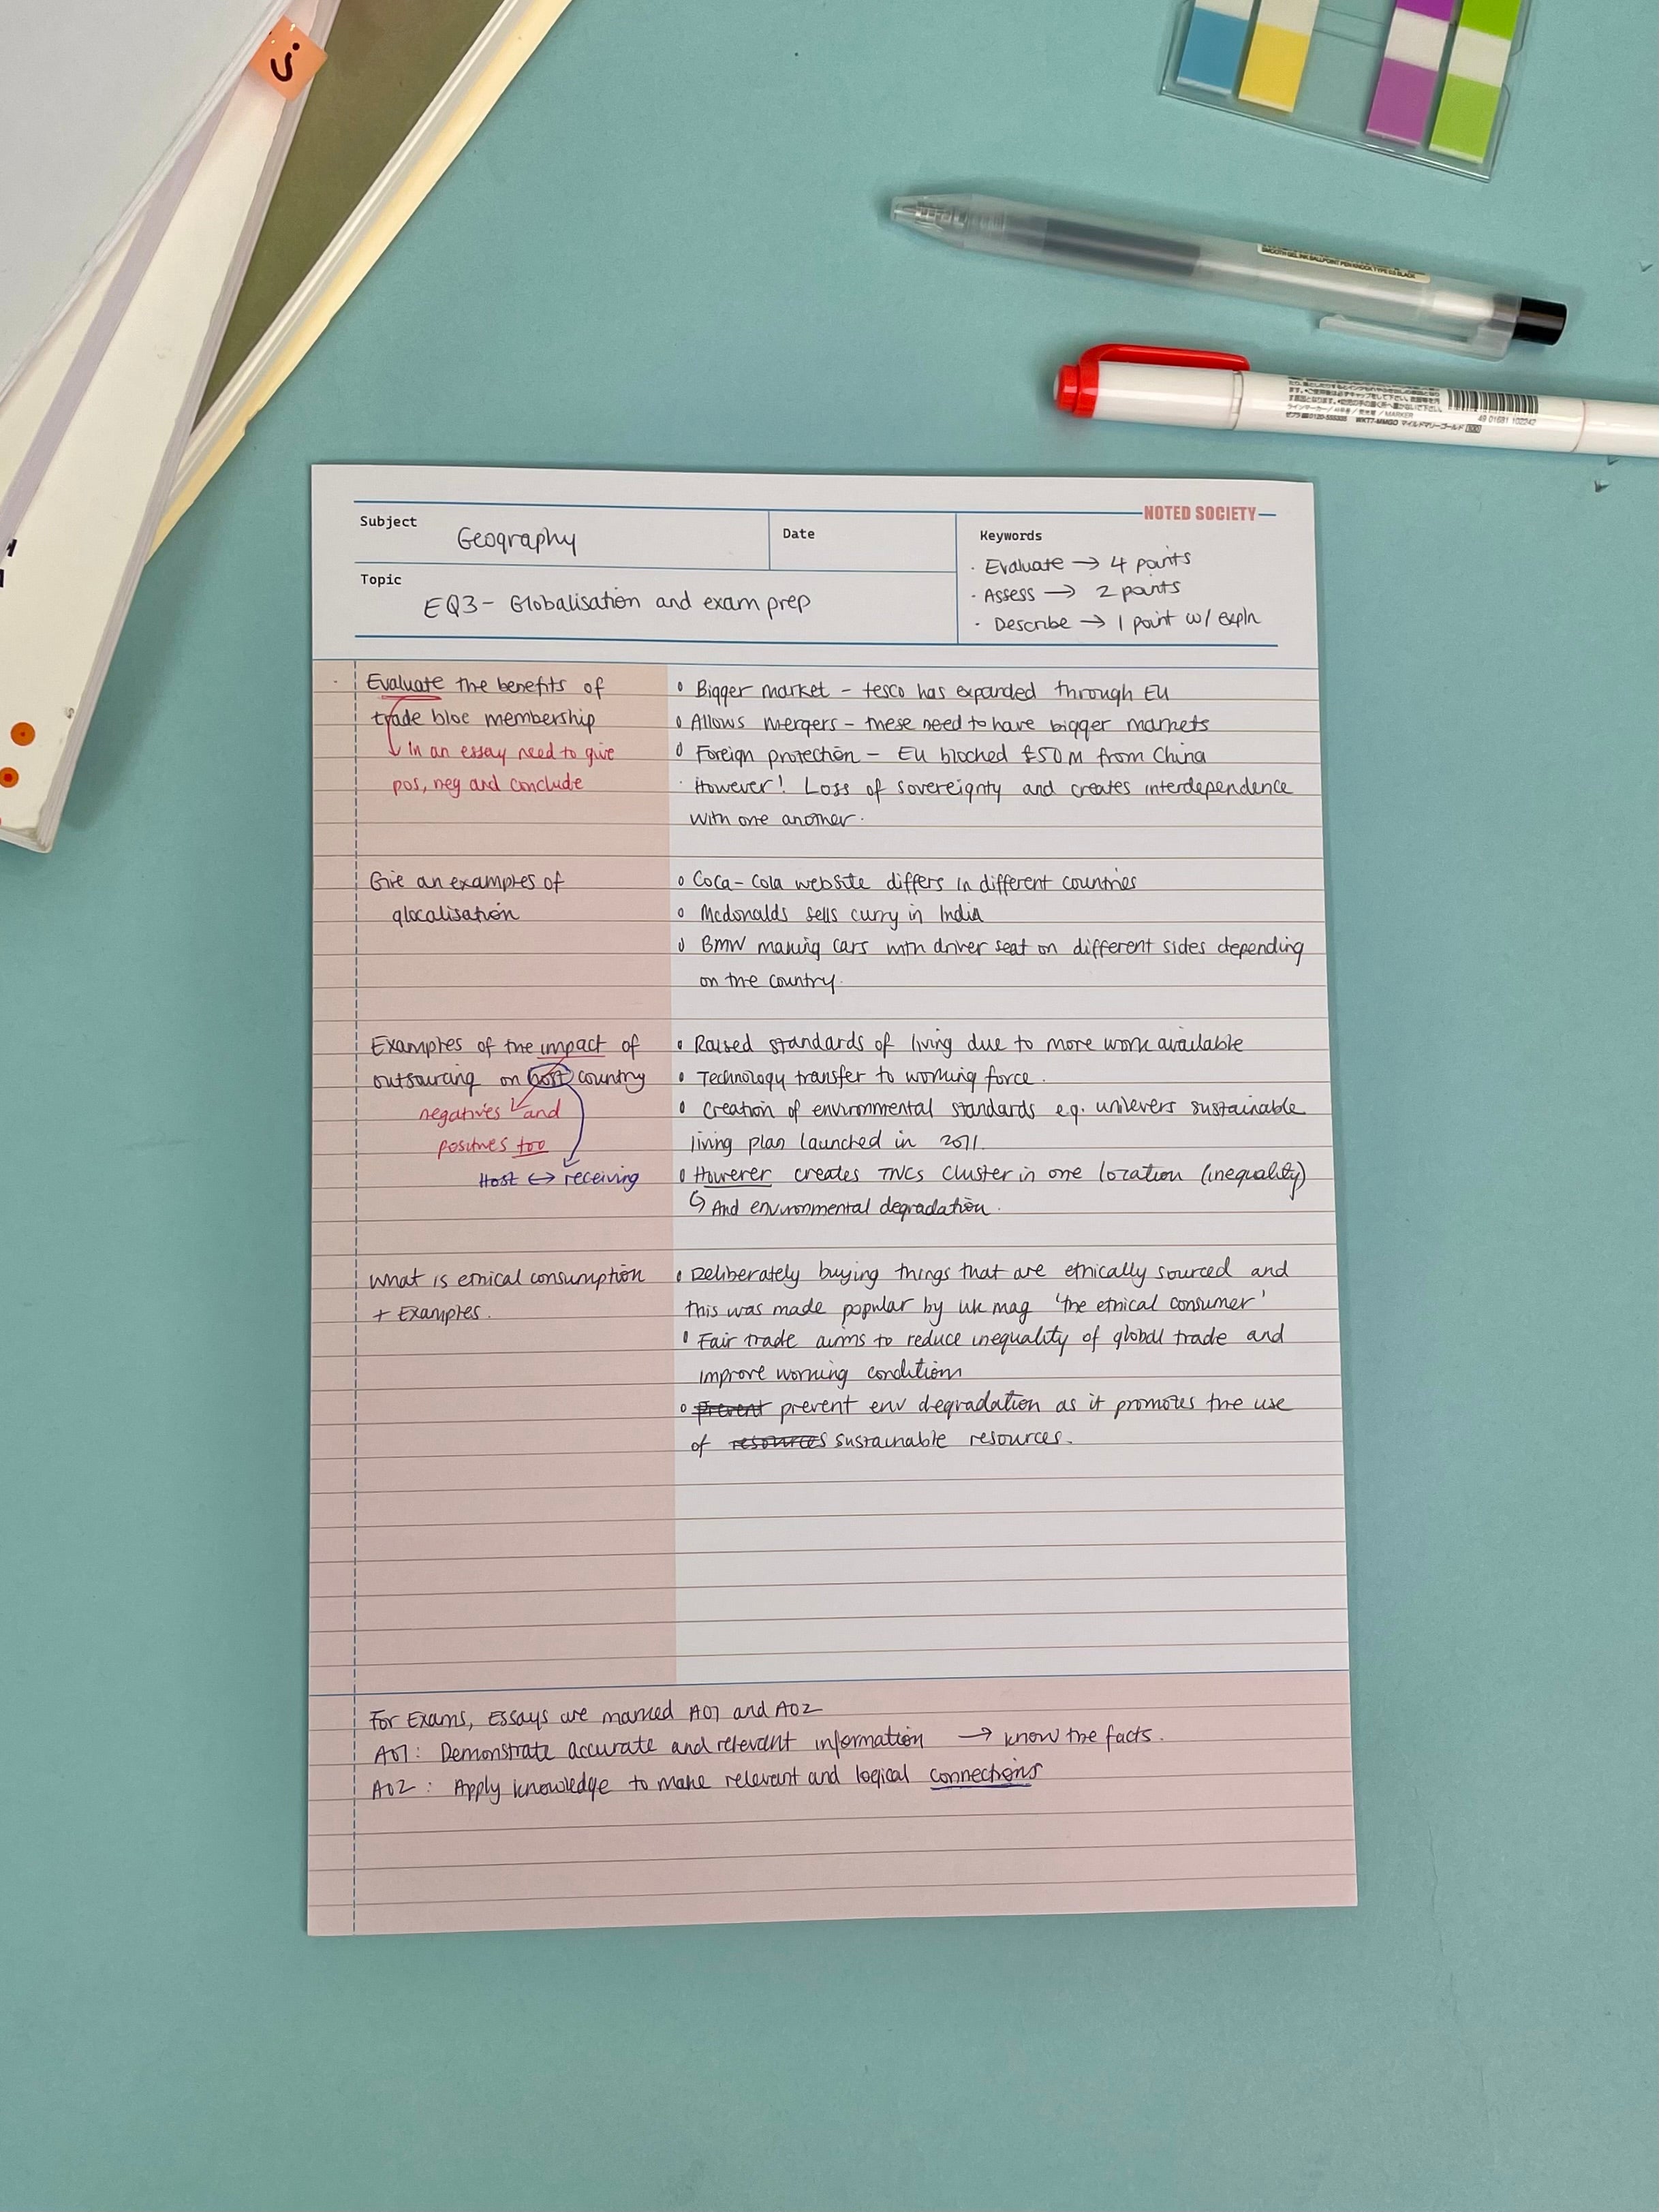 SMOOTH GEL INK BALLPOINT PEN KNOCK TYPE 0.5 BLACK
ラインマーカー
MARKER
WKT7-MMGO マイルドマリーゴールド
49 01681 102242
NOTED SOCIETY
Subject
Geography
Date
Keywords
· Evaluate → 4 points
· Assess → 2 points
· Describe → 1 point w/ expln
Topic
EQ3 - Globalisation and exam prep
Evaluate the benefits of
trade bloc membership
In an essay need to give
pos, neg and conclude
Bigger market - tesco has expanded through EU
Allows mergers - these need to have bigger markets
Foreign protection - EU blocked £50M from China
However! Loss of sovereignty and creates interdependence
with one another.
Give an examples of
glocalisation
Coca-Cola website differs in different countries
Mcdonalds sells curry in India
BMW making cars with driver seat on different sides depending
on the country.
Examples of the impact of
outsourcing on host country
negatives and
positives too
Host ↔ receiving
Raised standards of living due to more work available
Technology transfer to working force.
Creation of environmental standards e.g. unilevers sustainable
living plan launched in 2011.
However creates TNCs cluster in one location (inequality)
And environmental degradation.
What is ethical consumption
+ Examples.
Deliberately buying things that are ethically sourced and
this was made popular by uk mag 'the ethical consumer'
Fair trade aims to reduce inequality of global trade and
improve working conditions
Prevent prevent env degradation as it promotes the use
of resources sustainable resources.
For Exams, Essays are marked A01 and A02
A01: Demonstrate accurate and relevant information → know the facts.
A02: Apply knowledge to make relevant and logical connections